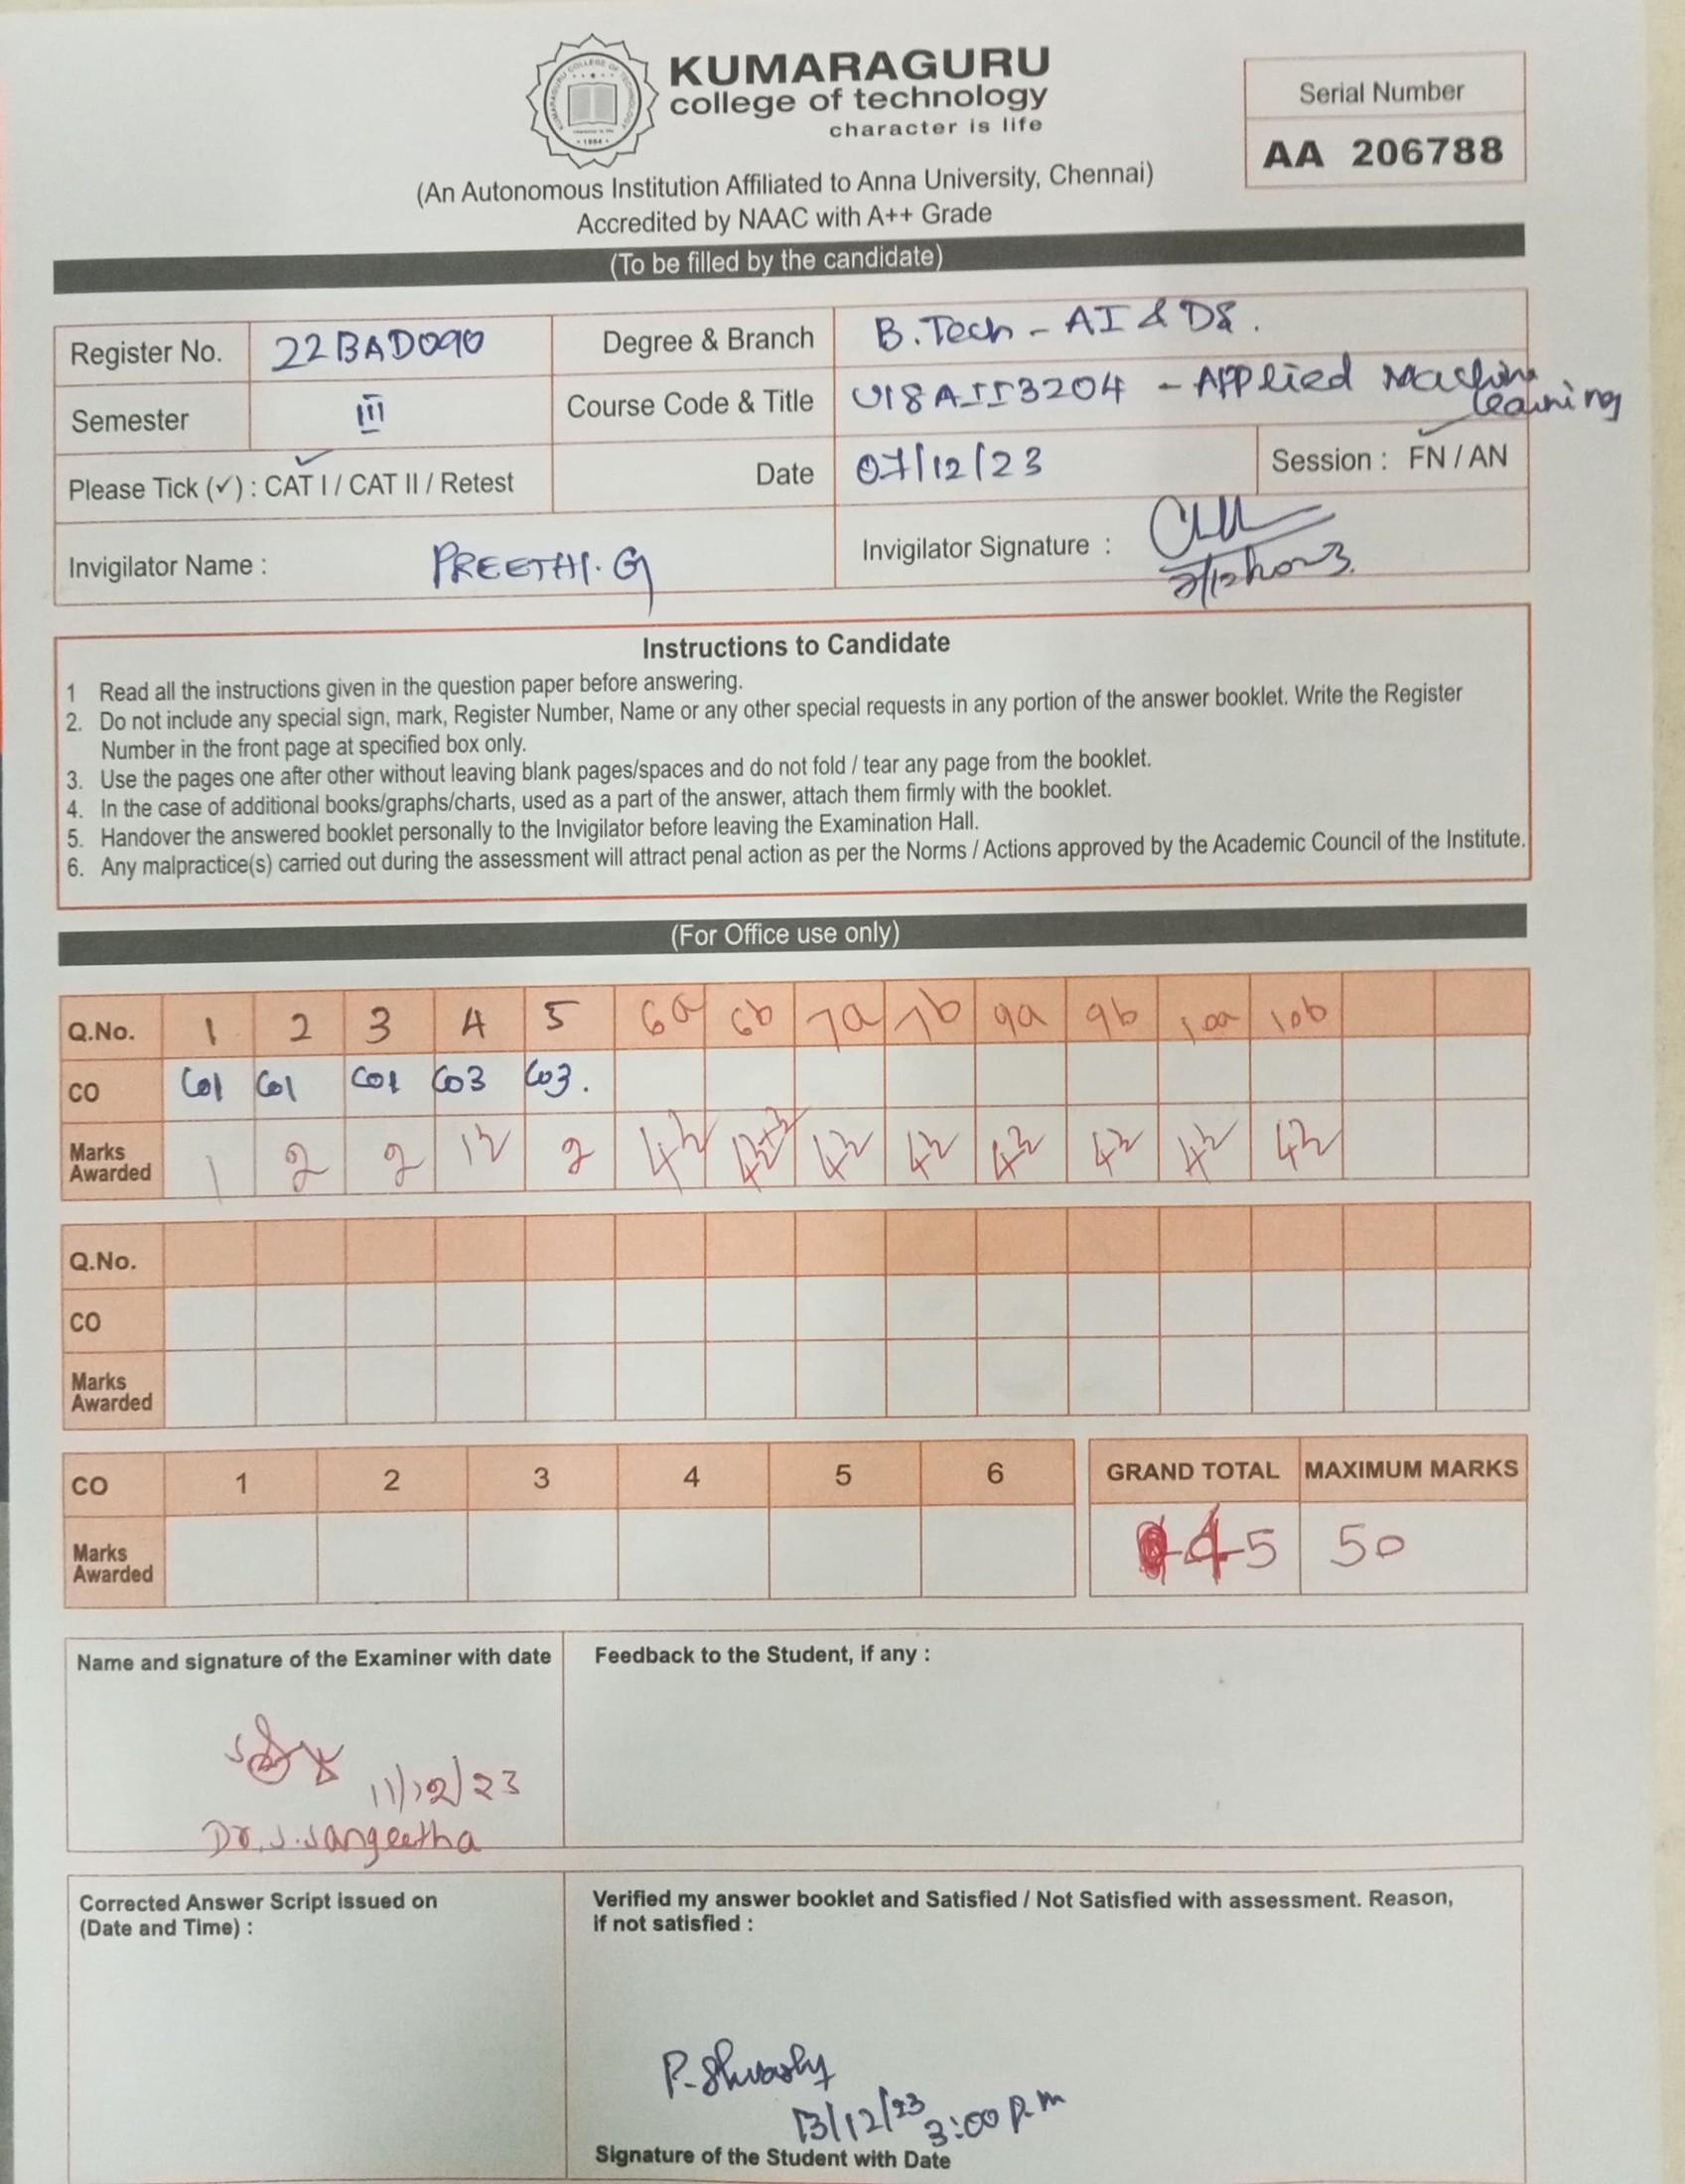 KUMARAGURU
college of technology
character is life
Serial Number
AA 206788
(An Autonomous Institution Affiliated to Anna University, Chennai)
Accredited by NAAC with A++ Grade
(To be filled by the candidate)
Register No. 22BAD090 Degree & Branch B.Tech - AI & DS.
Semester III Course Code & Title U18AII3204 - Applied Machine learning
Please Tick (✓) : CAT I / CAT II / Retest Date 07/12/23 Session : FN / AN
Invigilator Name : PREETHI.G Invigilator Signature :
Instructions to Candidate
1 Read all the instructions given in the question paper before answering.
2. Do not include any special sign, mark, Register Number, Name or any other special requests in any portion of the answer booklet. Write the Register
Number in the front page at specified box only.
3. Use the pages one after other without leaving blank pages/spaces and do not fold / tear any page from the booklet.
4. In the case of additional books/graphs/charts, used as a part of the answer, attach them firmly with the booklet.
5. Handover the answered booklet personally to the Invigilator before leaving the Examination Hall.
6. Any malpractice(s) carried out during the assessment will attract penal action as per the Norms / Actions approved by the Academic Council of the Institute.
(For Office use only)
Q.No. 1 2 3 4 5 6a 6b 7a 7b 9a 9b 10a 10b
CO CO1 CO1 CO1 CO3 CO3.
Marks
Awarded 1 2 2 2
Q.No.
CO
Marks
Awarded
CO 1 2 3 4 5 6 GRAND TOTAL MAXIMUM MARKS
Marks
Awarded 45 50
Name and signature of the Examiner with date
Feedback to the Student, if any :
11/12/23
Dr.S.Sangeetha
Corrected Answer Script issued on
(Date and Time) :
Verified my answer booklet and Satisfied / Not Satisfied with assessment. Reason,
if not satisfied :
13/12/23 3:00 P.m
Signature of the Student with Date